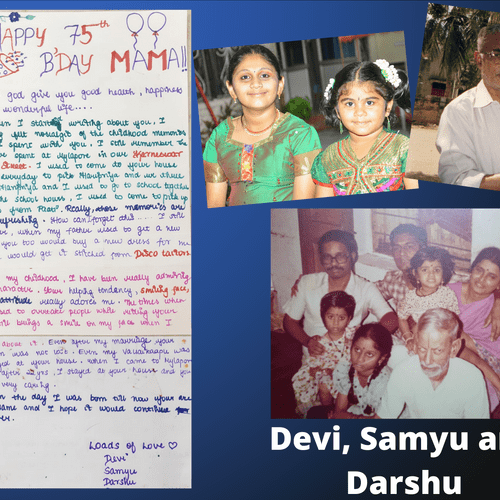 HAPPY 75th
B'DAY MAMA!!
god give you good health, happiness
wonderful life....
I start writing about you, I
felt nostalgic of the childhood memories
I spent with you. I still remember the
we spent at Mylapore in our
Street. I used to come to your house
everyday to pick Haripriya and we three
Haripriya and I used to go to school together
the school hours, I used to come to pick up
from Paati. Really, those memories are
refreshing. How can forget this..... I still
, when my father used to get a new
you too would buy a new dress for me
would get it stitched from Disco tailors.
my childhood, I have been really admiring
character. Your helping tendency, smiling face,
attitude really adores me. The times when
used to overtake people while riding your
brings a smile on my face when I
about it. Even after my marriage your
was not lost. Even my Valaikaapu was
at your house. When I came to Mylapore
after I stayed at your house and you
very caring.
the day I was born till now your
same and I hope it would continue
Loads of Love ♡
Devi
Samyu
Darshu
Devi, Samyu a
Darshu